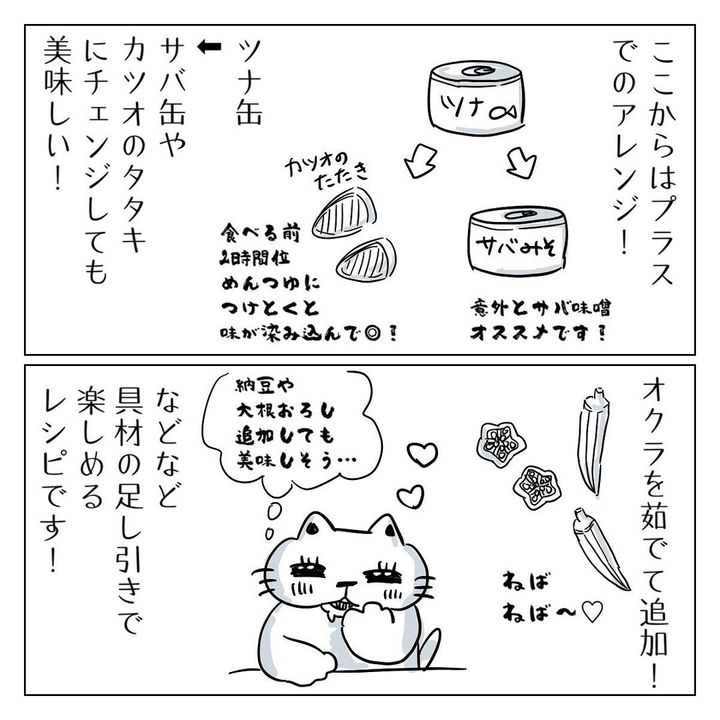 ここからはプラス
でのアレンジ！
ツナ
カツオの
たたき
サバみそ
食べる前
2時間位
めんつゆに
つけとくと
味が染み込んで◎！
意外とサバ味噌
オススメです！
ツナ缶
⬅
サバ缶や
カツオのタタキ
にチェンジしても
美味しい！
オクラを茹でて追加！
ねば
ねば〜♡
納豆や
大根おろし
追加しても
美味しそう…
などなど
具材の足し引きで
楽しめる
レシピです！